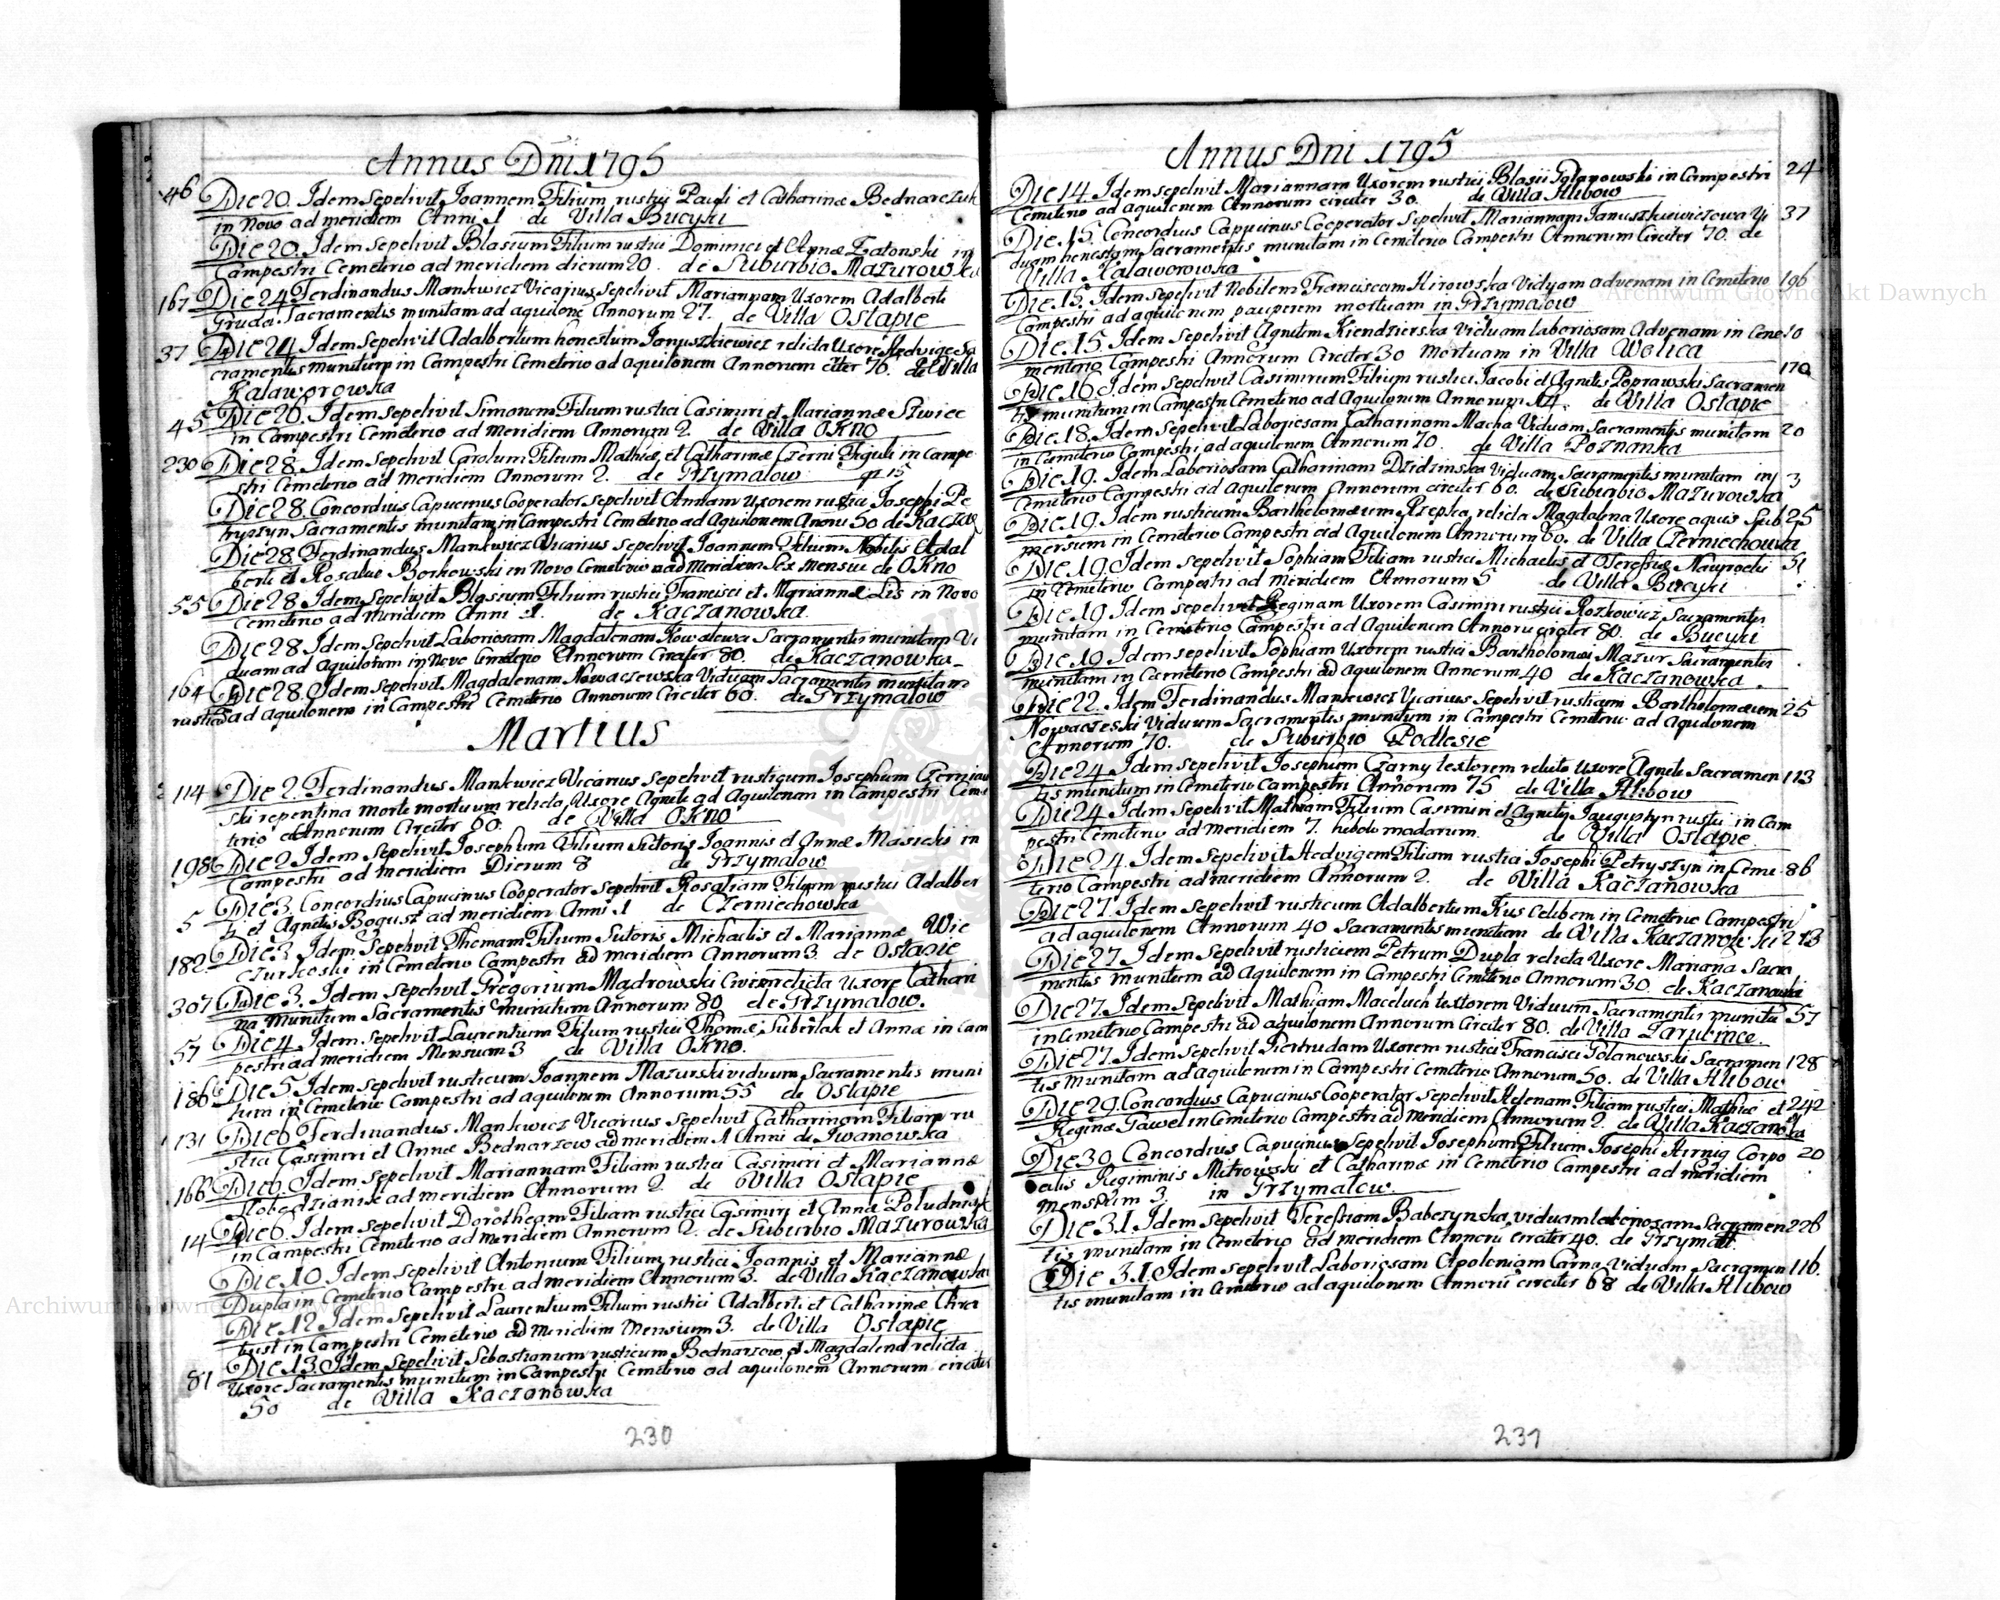 Annus Dni 1795
46 Die 20. Idem Sepelivit Joannem Filium rustici Pauli et Catharinæ Bednarczuk
in Novo ad meridiem Anni 1 de Villa Bucyki
Die 20. Idem Sepelivit Blasium Filium rustici Dominici et Annæ Zatonski in
Campestri Cemeterio ad meridiem dierum 20. de Suburbio Mazurowka
167 Die 24 Ferdinandus Mankwicz Vicarius Sepelivit Mariannam Uxorem Adalberti
Gruda Sacramentis munitam ad aquilone Annorum 27. de Villa Ostapie
37 Die 24 Idem Sepelivit Adalbertum honestum Januszkiewicz relicta Uxore Hedvige Sa
cramentis munitum in Campestri Cemeterio ad aquilonem Annorum citer 76. de Villa
Kalaworowka
45 Die 26. Idem Sepelivit Simonem Filium rustici Casimiri et Mariannæ Siwiec
in Campestri Cemeterio ad meridiem Annorum 2. de Villa OKNO
230 Die 28 Idem Sepelivit Carolum Filium Mathiæ et Catharinæ Czerni Figuli in Campe
stri Cemeterio ad meridiem Annorum 2. de Grzymalow
Die 28. Concordius Capucinus Cooperator Sepelivit Annam Uxorem rustici Josephi Pe
tryszyn Sacramentis munitam in Campestri Cemeterio ad Aquilonem Annoru 50 de Kaczan
Die 28. Ferdinandus Mankwicz Vicarius Sepelivit Joannem Filium Nobilis Adal
berti et Rosaliæ Borkowski in Novo Cemeterio ad meridiem Sex mensiu de OKNO
55 Die 28 Idem Sepelivit Blasium Filium rustici Francisci et Mariannæ Lis in Novo
Cemeterio ad meridiem Anni 1. de Kaczanowka.
Die 28 Idem Sepelivit Laboriosam Magdalenam Kowalewa Sacramentis munitam Vi
duam ad Aquilonem in Novo Cemeterio Annorum Circiter 80. de Kaczanowka
164 Die 28. Idem Sepelivit Magdalenam Nowaczewska Viduam Sacramentis munitam
rustica ad aquilonem in Campestri Cemeterio Annorum Circiter 60. de Grzymalow
Martius
114 Die 2. Ferdinandus Mankwicz Vicarius Sepelivit rusticum Josephum Czerniaw
ski repentina morte mortuum relicta Uxore Agnete ad Aquilonem in Campestri Ceme
terio Annorum Circiter 60. de Villa OKNO
198 Die 2 Idem Sepelivit Josephum Filium Sutoris Joannis et Annæ Masicki in
Campestri ad meridiem Dierum 8 de Grzymalow
Die 3 Concordius Capucinus Cooperator Sepelivit Rosaliam Filiam rustici Adalber
5 ti et Agnetis Bogusz ad meridiem Anni 1 de Czerniechowka
Die 3 Idem Sepelivit Thomam Filium Sutoris Michaelis et Mariannæ Wie
182 czurkoski in Cemeterio Campestri ad meridiem Annorum 3. de Ostapie
307 Die 3. Idem Sepelivit Gregorium Madrowski Civem relicta Uxore Cathari
na munitum Sacramentis munitum Annorum 80 de Grzymalow.
57 Die 4 Idem Sepelivit Laurentium Filium rustici Thomæ Suberlak et Annæ in Cam
pestri ad meridiem Mensium 3 de Villa OKNO.
186 Die 5 Idem Sepelivit rusticum Joannem Mazurski viduum Sacramentis muni
tum in Cemeterio Campestri ad aquilonem Annorum 55 de Ostapie
131 Die 6 Ferdinandus Mankwicz Vicarius Sepelivit Catharinam Filiam ru
stici Casimiri et Annæ Bednarzow ad meridiem 1 Anni de Iwanowka
166 Die 6 Idem Sepelivit Mariannam Filiam rustici Casimiri et Mariannæ
ad meridiem Annorum 2. de Villa Ostapie
14 Die 6. Idem Sepelivit Dorotheam Filiam rustici Casimiri et Annæ
in Campestri Cemeterio ad meridiem Annorum 2. de Suburbio Mazurowka
Die 10 Idem Sepelivit Antonium Filium rustici Joannis et Mariannæ
Dupla in Cemeterio Campestri ad meridiem Annorum 3. de Villa Kaczanowka
Die 12 Idem Sepelivit Laurentium Filium rustici Adalberti et Catharinæ
in Campestri Cemeterio ad meridiem Mensium 3. de Villa Ostapie
81 Die 13 Idem Sepelivit Sebastianum rusticum Bednarzow Magdalena relicta
Uxore Sacramentis munitum in Campestri Cemeterio ad aquilonem Annorum circiter
50 de Villa Kaczanowka
230
Annus Dni 1795
Die 14 Idem sepelivit Mariannam Uxorem rustici Blasii Golanowski in Campestri 24
Cemeterio ad aquilonem Annorum circiter 30. de Villa Hlibow
Die 15 Concordius Capucinus Cooperator Sepelivit Mariannam Januszkiewiczowa Vi 37
duam honestam Sacramentis munitam in Cemeterio Campestri Annorum Circiter 70. de
Villa Kalaworowka
Die 15. Idem Sepelivit Nobilem Franciscam Kirowska Viduam advenam in Cemeterio 196
Campestri ad aquilonem pauperem mortuam in Grzymalow
Die 15. Idem Sepelivit Agnetem Kiendzierska Viduam laboriosam Advenam in Ceme 10
menterio Campestri Annorum Circiter 30 mortuam in Villa Wolica
Die 16 Idem Sepelivit Casimirum Filium rustici Jacobi et Agnetis Poprawski Sacramen 170
tis munitum in Campestri Cemeterio ad Aquilonem Annorum 14. de Villa Ostapie
Die 18. Idem Sepelivit Laboriosam Catharinam Macha Viduam Sacramentis munitam 20
in Cemeterio Campestri ad aquilonem Annorum 70. de Villa Poznanka
Die 19. Idem Laboriosam Catharinam Dzidzinska Viduam Sacramentis munitam in 3
Cemeterio Campestri ad aquilonem Annorum circiter 60. de Suburbio Mazurowka
Die 19. Idem rusticum Bartholomæum Rzepka, relicta Magdalena Uxore aquis Sub 25
mersum in Cemeterio Campestri ad Aquilonem Annorum 60. de Villa Czerniechowka
Die 19. Idem sepelivit Sophiam Filiam rustici Michaelis et Teressiæ Nawrocki 51
in Cemeterio Campestri ad meridiem Annorum 5 de Villa Bucyki
Die 19. Idem sepelivit Reginam Uxorem Casimiri rustici Rozkowicz Sacramentis
munitam in Cemeterio Campestri ad Aquilonem Annoru circiter 80. de Bucyki
Die 19. Idem sepelivit Sophiam Uxorem rustici Bartholomæi Mazur Sacramentis
munitam in Cemeterio Campestri ad Aquilonem Annorum 40 de Kaczanowka
Die 22. Idem Ferdinandus Mankwicz Vicarius Sepelivit rusticum Bartholomæum 25
Nowaczeski Viduum Sacramentis munitum in Campestri Cemeterio ad aquilonem
Annorum 70. de Suburbio Podlesie
Die 24 Idem Sepelivit Josephum Czarny textorem relicta Uxore Agnete Sacramen 113
tis munitum in Cemeterio Campestri Annorum 75 de Villa Hlibow
Die 24 Idem Sepelivit Mathiam Filium Casimiri et Agnetis rustici in Cam
pestri Cemeterio ad meridiem 7. hebdomadarum. de Villa Ostapie
Die 24. Idem Sepelivit Hedvigem Filiam rustici Josephi Petryszyn in Ceme 86
terio Campestri ad meridiem Annorum 2. de Villa Kaczanowka
Die 27. Idem Sepelivit rusticum Adalbertum Kus Celibem in Cemeterio Campestri
ad aquilonem Annorum 40 Sacramentis munitum de Villa Kaczanowki 213
Die 27 Idem Sepelivit rusticum Petrum Dupla relicta Uxore Mariana Sacra
mentis munitum ad Aquilonem in Campestri Cemeterio Annorum 30. de Kaczanowka
Die 27. Idem Sepelivit Mathiam Maceluch textorem Viduum Sacramentis munitu 57
in Cemeterio Campestri ad aquilonem Annorum Circiter 80. de Villa Zarubince.
Die 27. Idem Sepelivit Giertrudam Uxorem rustici Francisci Golanowski Sacramen 128
tis munitam ad aquilonem in Campestri Cemeterio Annorum 50. de Villa Hlibow
Die 29. Concordius Capucinus Cooperator Sepelivit Helenam Filiam rustici Mathiæ et 242
Reginæ Gawel in Cemeterio Campestri ad meridiem Annorum 2. de Villa Kaczanowka
Die 30. Concordius Capucinus Sepelivit Josephum Filium Josephi Hirnig Corpo 20
ralis Regiminis Mitrowski et Catharinæ in Cemeterio Campestri ad meridiem
Mensium 3. in Grzymalow.
Die 31. Idem Sepelivit Teressiam Babczynska, viduam laboriosam Sacramen 226
tis munitam in Cemeterio ad meridiem Annoru circiter 40. de Grzymal
Die 31. Idem Sepelivit Laboriosam Apoloniam Carna Viduam Sacramen 116.
tis munitam in Cemeterio ad aquilonem Annoru circiter 68 de Villa Hlibow
231
Archiwum Główne Akt Dawnych
Archiwum Główne Akt Dawnych